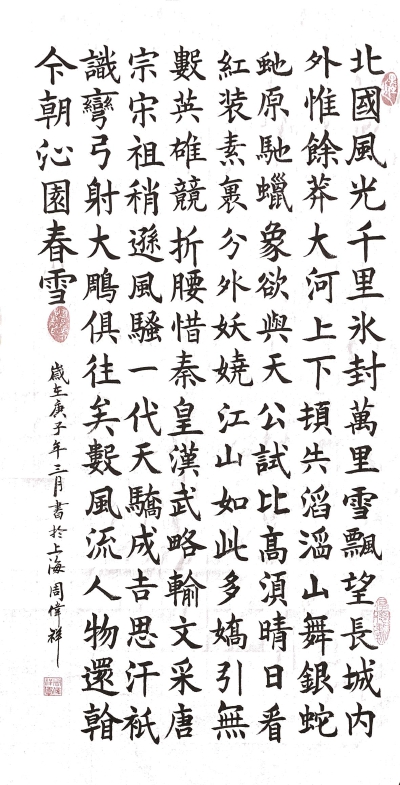 北國風光千里氷封萬里雪飄望長城内
外惟餘莽大河上下頓失滔滔山舞銀蛇
虵原馳蠟象欲與天公試比高須晴日看
紅装素裹分外妖嬈江山如此多嬌引無
數英雄競折腰惜秦皇漢武略輸文采唐
宗宋祖稍遜風騷一代天驕成吉思汗衹
識彎弓射大鵰俱往矣數風流人物還翰
今朝沁園春雪
歲在庚子年三月書於上海周偉祥